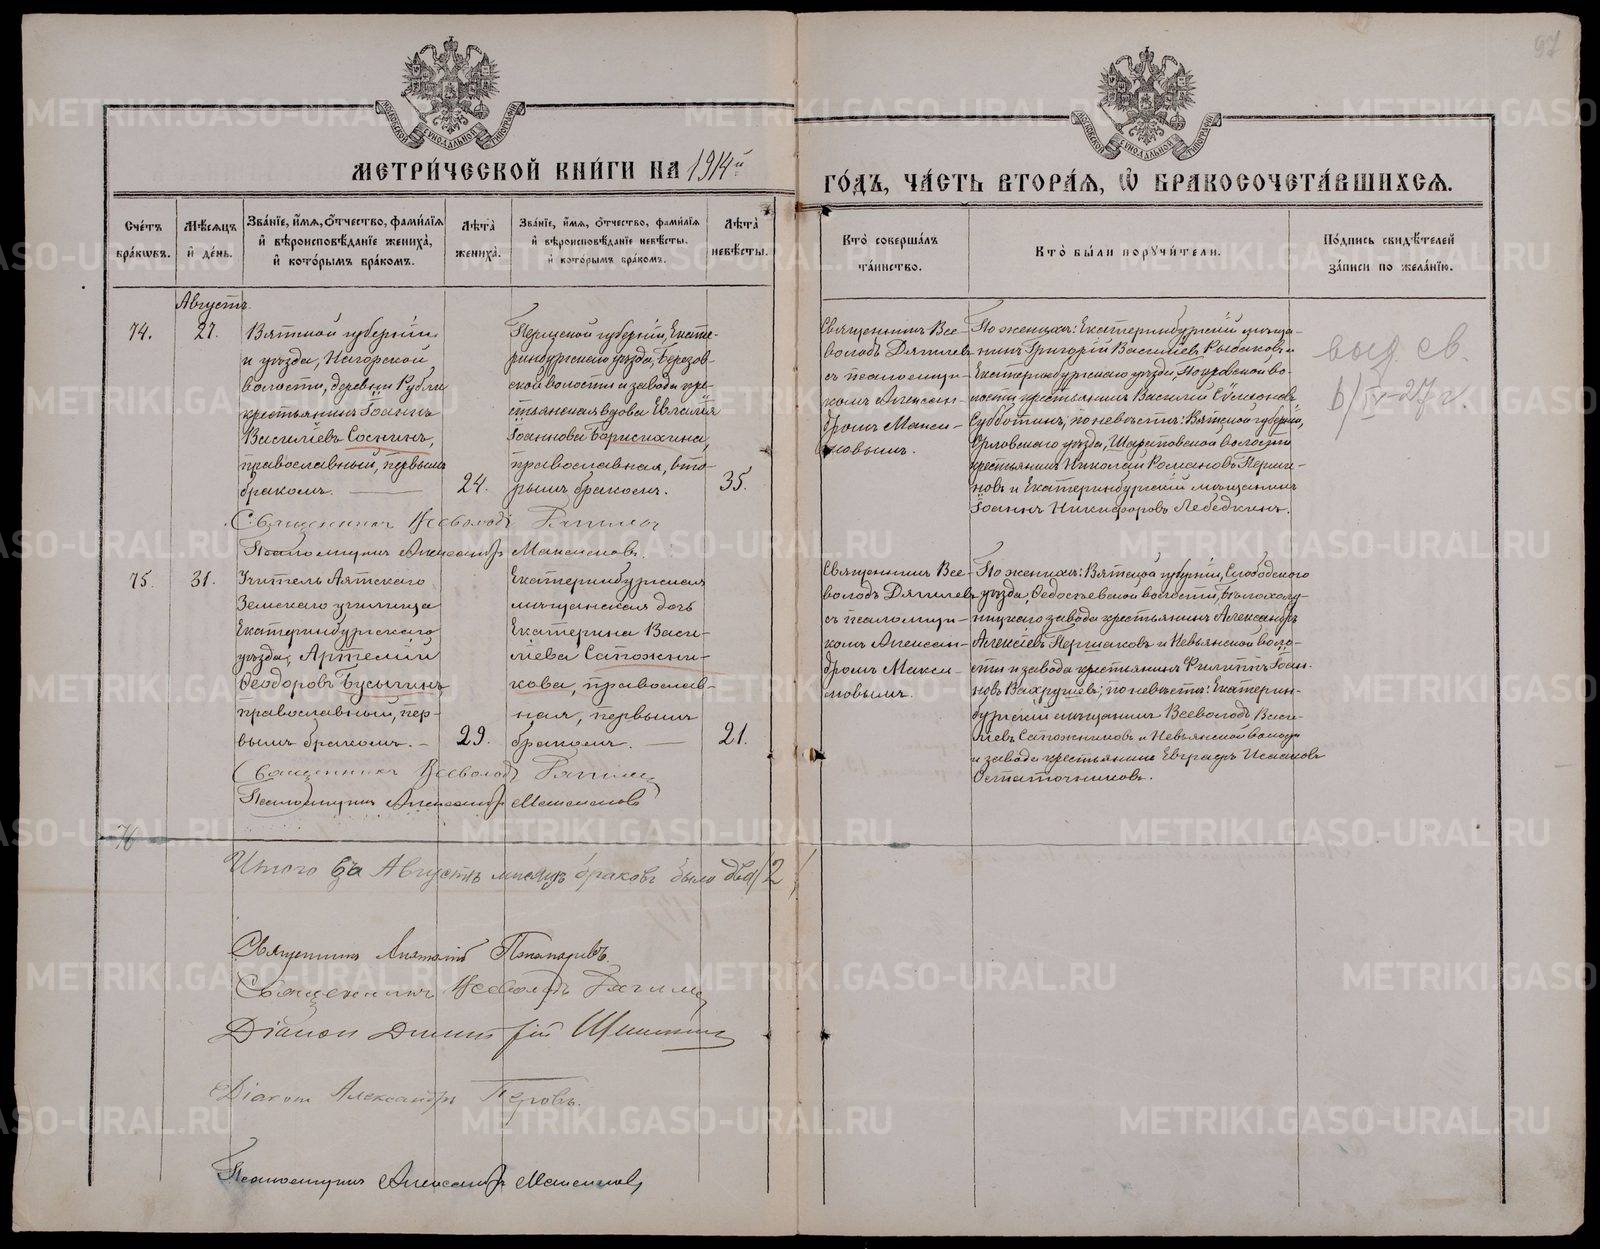 97
МЕТРИ́ЧЕСКОЙ КНИ́ГИ НА 1914й
ГО́ДЪ, ЧА́СТЬ ВТОРА́Я, Ѡ БРАКОСОЧЕТА́ВШИХСЯ.
Сче́тъ бра́кѡвъ.
Мѣ́сяцъ и҆ де́нь.
Зва́нїе, и҆́мя, ѻ҆́тчество, фами́лїя и҆ вѣроисповѣ́данїе жениха̀, и҆ кото́рымъ бра́комъ.
Лѣ́та жениха̀.
Зва́нїе, и҆́мя, ѻ҆́тчество, фами́лїя и҆ вѣроисповѣ́данїе невѣ́сты, и҆ кото́рымъ бра́комъ.
Лѣ́та невѣ́сты.
Кто̀ соверша́лъ та́инство.
Кто̀ бы́ли поручи́тели.
По́дпись свидѣ́телей за́писи по жела́нїю.
Августъ
74.
27.
Вятской губерніи
и уѣзда, Нагорской
волости, деревни Рубли
крестьянинъ Іоаннъ
Василіевъ Соснинъ,
православный, первымъ
бракомъ.
24.
Пермской губерніи, Екате-
ринбургскаго уѣзда, Березов-
ской волости и завода кре-
стьянская вдова Евгенія
Іоаннова Борисихина,
православная, вто-
рымъ бракомъ.
35.
Священникъ Все-
володъ Дягилевъ
съ псаломщи-
комъ Алексан-
дромъ Макси-
мовымъ.
По женихѣ: Екатеринбургскій мѣща-
нинъ Григорій Василіевъ Рыбаковъ и
Екатеринбургскаго уѣзда, Покровской во-
лости крестьянинъ Василій Сѵмеоновъ
Субботинъ; по невѣстѣ: Вятской губерніи,
Орловскаго уѣзда, Шараповской волости
крестьянинъ Николай Романовъ Перми-
новъ и Екатеринбургскій мѣщанинъ
Іоаннъ Никифоровъ Лебедкинъ.
выд. св.
6/IV-27 г.
Священникъ Всеволодъ Дягилевъ
Псаломщикъ Александръ Максимовъ.
75.
31.
Учитель Аятскаго
Земскаго училища
Екатеринбургскаго
уѣзда, Артемій
Ѳеодоровъ Бусыгинъ
православный, пер-
вымъ бракомъ.
29.
Екатеринбургская
мѣщанская дочь
Екатерина Васи-
ліева Сапожни-
кова, православ-
ная, первымъ
бракомъ.
21.
Священникъ Все-
володъ Дягилевъ
съ псаломщи-
комъ Алексан-
дромъ Макси-
мовымъ.
По женихѣ: Вятской губерніи, Слободского
уѣзда, Ѳедосѣевской волости, Бѣлохолу-
ницкаго завода крестьянинъ Александръ
Алексіевъ Першаковъ и Невьянской воло-
сти и завода крестьянинъ Филиппъ Іоан-
новъ Вахрушевъ; по невѣстѣ: Екатерин-
бургскій мѣщанинъ Всеволодъ Васи-
ліевъ Сапожниковъ и Невьянской волости
и завода крестьянинъ Евграфъ Исааковъ
Остаточниковъ.
Священникъ Всеволодъ Дягилевъ
Псаломщикъ Александръ Максимовъ
76
Итого за Августъ мѣсяцъ браковъ было два /2/
Священникъ Анатолій Пономаревъ.
Священникъ Всеволодъ Дягилевъ
Діаконъ Димитрій
Діаконъ Александръ Перовъ.
Псаломщикъ Александръ Максимовъ
METRIKI.GASO-URAL.RU